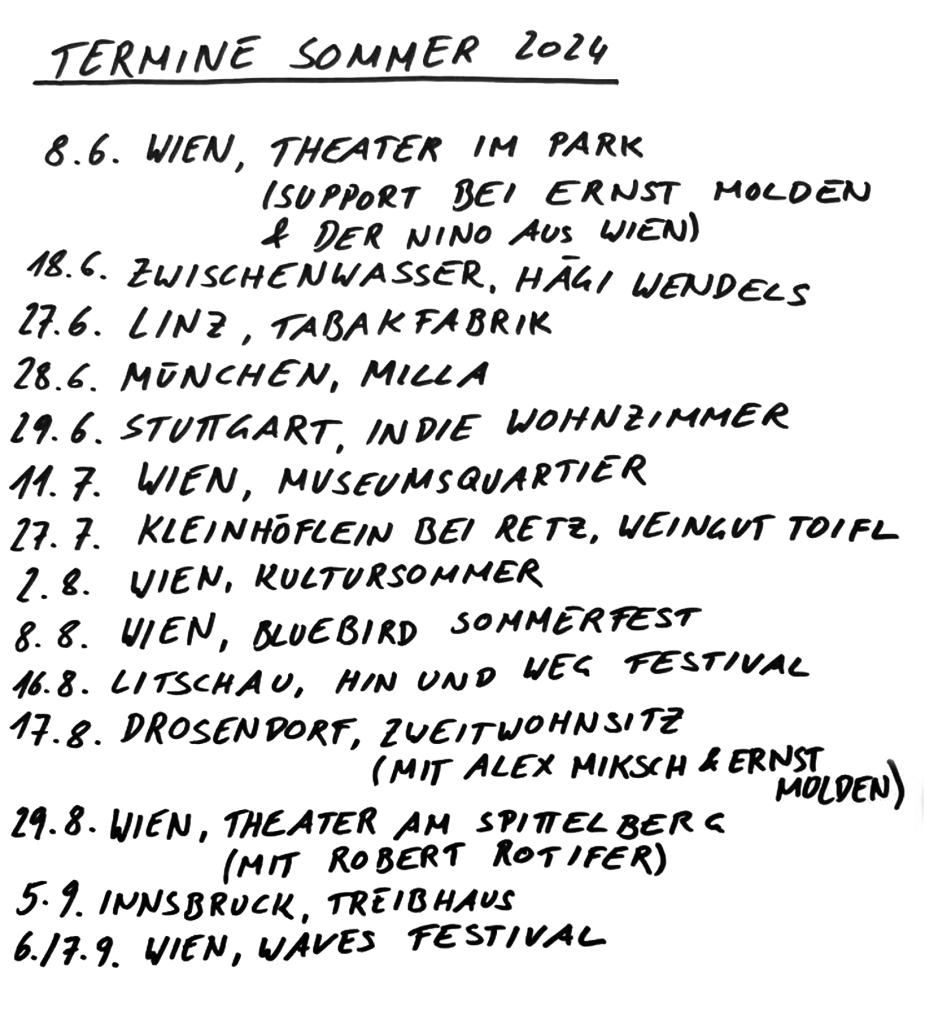 TERMINE SOMMER 2024
8.6. WIEN, THEATER IM PARK
(SUPPORT BEI ERNST MOLDEN
& DER NINO AUS WIEN)
18.6. ZWISCHENWASSER, HÄGI WENDELS
27.6. LINZ, TABAKFABRIK
28.6. MÜNCHEN, MILLA
29.6. STUTTGART, INDIE WOHNZIMMER
11.7. WIEN, MUSEUMSQUARTIER
27.7. KLEINHÖFLEIN BEI RETZ, WEINGUT TOIFL
2.8. WIEN, KULTURSOMMER
8.8. WIEN, BLUEBIRD SOMMERFEST
16.8. LITSCHAU, HIN UND WEG FESTIVAL
17.8. DROSENDORF, ZWEITWOHNSITZ
(MIT ALEX MIKSCH & ERNST
MOLDEN)
29.8. WIEN, THEATER AM SPITTELBERG
(MIT ROBERT ROTIFER)
5.9. INNSBRUCK, TREIBHAUS
6./7.9. WIEN, WAVES FESTIVAL